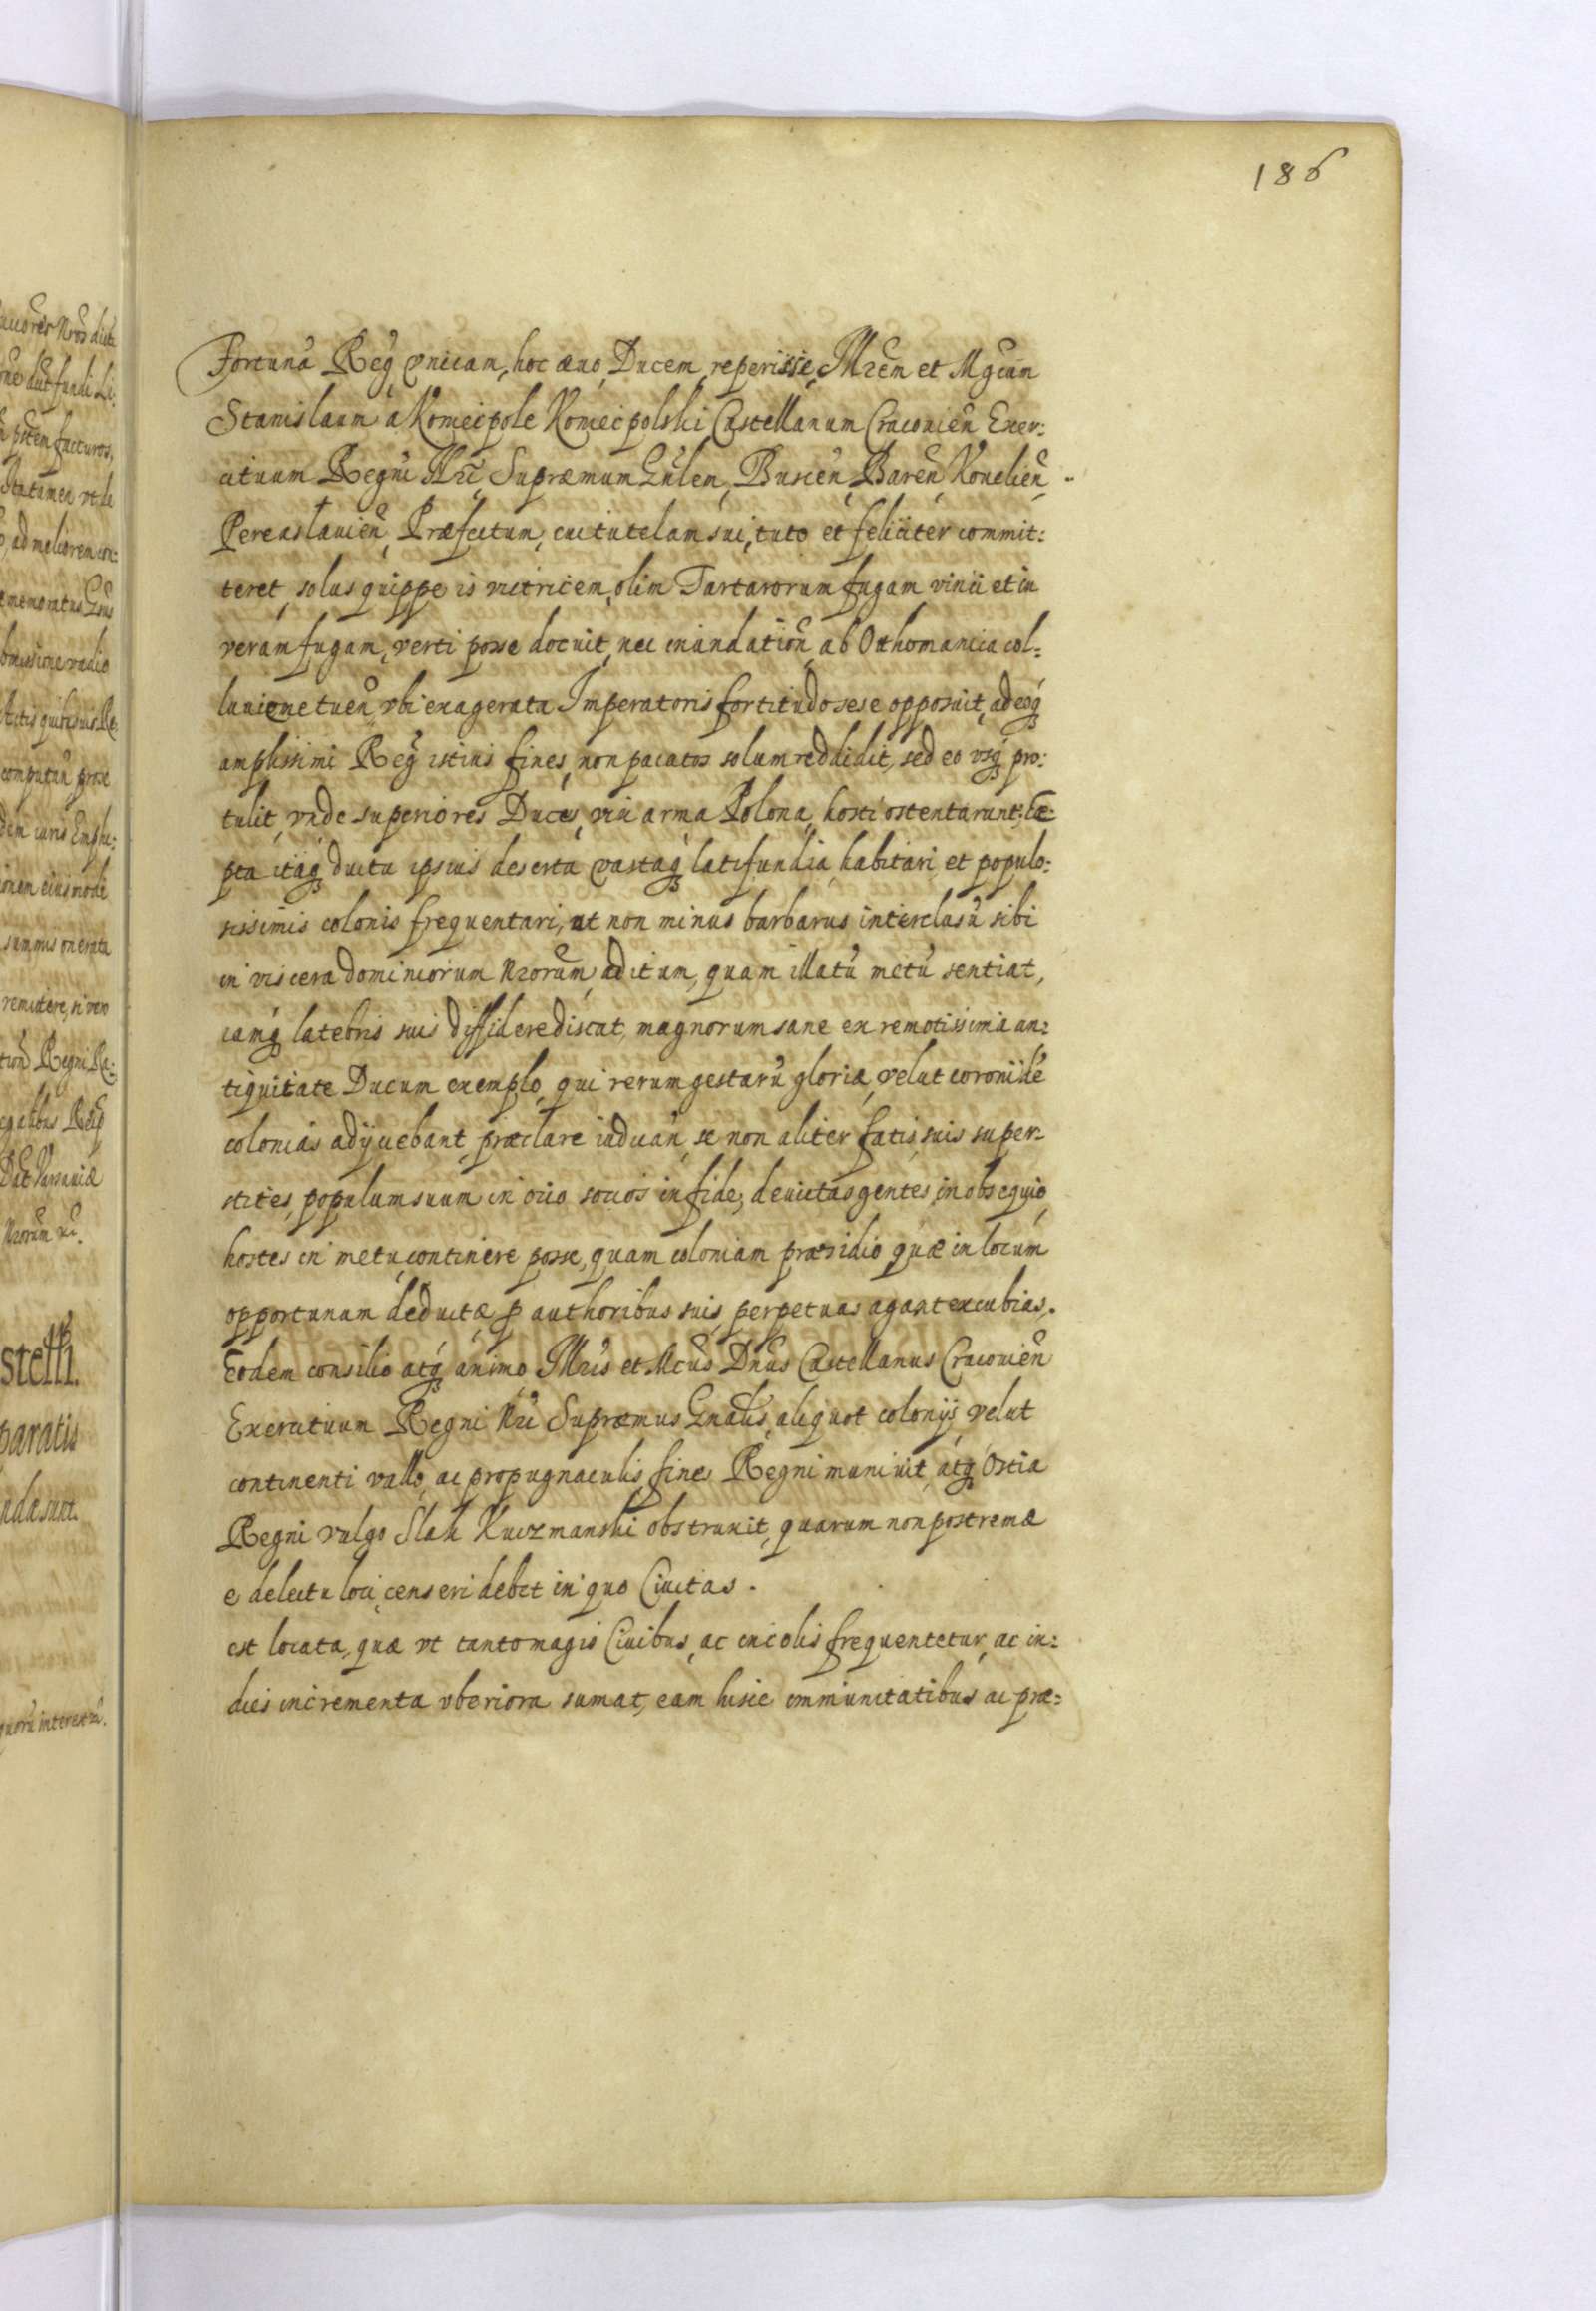 186
Fortuna Regꝫ vnicam, hoc æuo, Ducem, reperisse, Illrem et Mgcum
Stanislaum a Koniecpole Koniecpolski Castellanum Cracouien̄ Exer:
cituum Regni Nri, Supræmum Gnlem, Buscen̄, Baren̄ Kouelien̄,
Pereaslauien̄, Præfectum, cui tutelam sui, tuto et feliciter commit:
teret, solus quippe is victricem, olim Tartarorum fugam vinci et in
veram fugam, verti posse docuit, nec inundation̄, ab Othomanica col:
luuione tuen̄, vbi exagerata Imperatoris fortitudo sese opposuit, adeoqꝫ
amplissimi Regꝫ istius fines, non pacatos solum reddidit, sed eo vsqꝫ pro:
tulit, vnde superiores Duces, vix arma Polona, hosti ostentarunt. Cæ:
pta itaqꝫ ductu ipsius deserta vastaqꝫ latifundia, habitari et populo:
sissimis colonis frequentari, ut non minus barbarus interclusū sibi
in viscera dominiorum Nrorum, aditum, quam illatū metū sentiat,
iamqꝫ latebris suis diffidere discat, magnorum sane ex remotissima an:
tiquitate Ducum exemplo, qui rerum gestarū gloriæ, velut coronidē
colonias adijciebant, præclare iudican̄, se non aliter fatis, suis super:
stites, populum suum in ocio socios in fide, deuictas gentes, in obsequio,
hostes in metu, continere posse, quam coloniam præsidio, quæ in locum
opportunum deductæ p authoribus suis, perpetuas agant excubias.
Eodem consilio atqꝫ animo Illris et Mcus Dnus Castellanus Cracouien̄
Exercituum Regni Nri Supræmus Gnalis, aliquot colonijs, velut
continenti vallo, ac propugnaculis, fines Regni muniuit, atqꝫ Ostia
Regni vulgo Slak Kuczmanski obstruxit, quarum non postremæ
e delectu loci, censeri debet in quo Ciuitas .
est locata, quæ vt tanto magis Ciuibus, ac incolis frequentetur, ac in:
dies incrementa vberiora sumat, eam hisce immunitatibus ac præ: